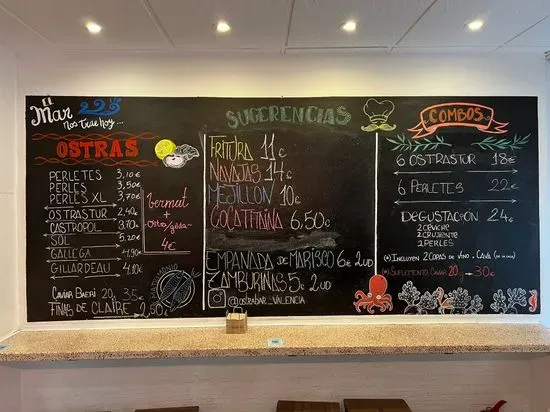 El Mar
Nos trae hoy...
OSTRAS
PERLETES 3,10€
PERLES 3,50€
PERLES XL 3,70€
OSTRASTUR 2,40€
CASTROPOL 3,70€
SOL 5,20€
GALLEGA 4,90€
GILLARDEAU 4,10€
CAVIAR BAERI 20g 35€
FINAS DE CLAIRE 2,50€
vermut
+
4€
SUGERENCIAS
FRITURA 11€
NAVAJAS 14€
MEJILLON 10€
COCA TITAINA 6,50€
EMPANADA DE MARISCO 6€ 2UD
ZAMBURIÑAS 5€ 2UD
@OSTRABAR_VALENCIA
COMBOS
6 OSTRASTUR 18€
6 PERLETES 22€
DEGUSTACION 24€
2 CEVICHE
2 CRUJIENTE
2 PERLES
(*) INCLUYEN 2 COPAS DE VINO o CAVA
(*) SUPLEMENTO CAVIAR 20g → 30€